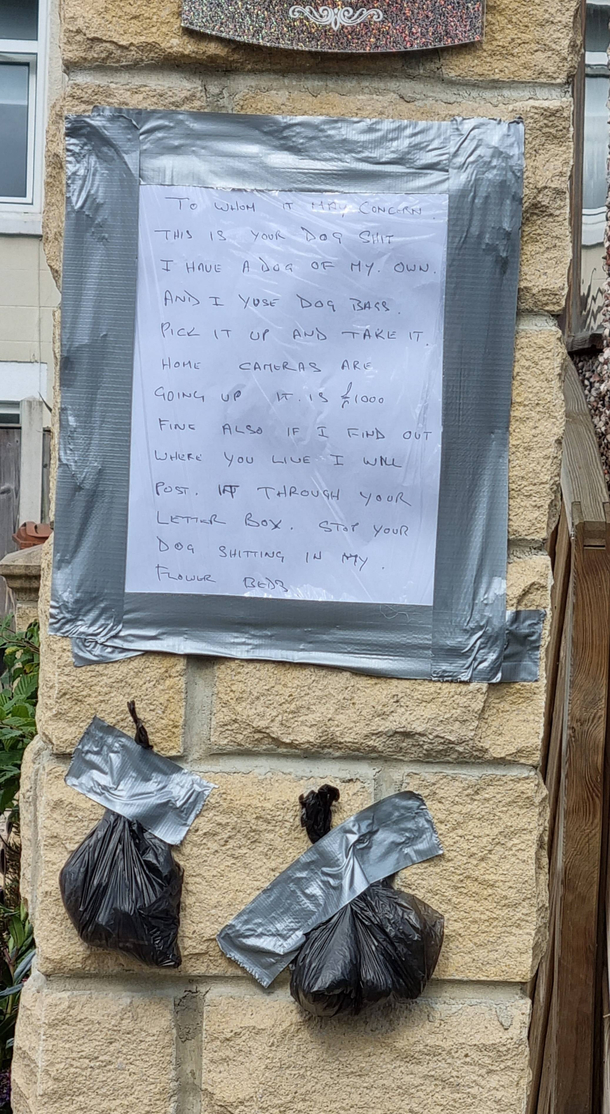 TO WHOM IT MAY CONCERN.
THIS IS YOUR DOG SHIT
I HAVE A DOG OF MY. OWN.
AND I YUSE DOG BAGS.
PICK IT UP AND TAKE IT.
HOME CAMERAS ARE
GOING UP IT. IS £1000
FINE ALSO IF I FIND OUT
WHERE YOU LIVE I WILL
POST. IT THROUGH YOUR
LETTER BOX. STOP YOUR
DOG SHITTING IN MY.
FLOWER BEDS